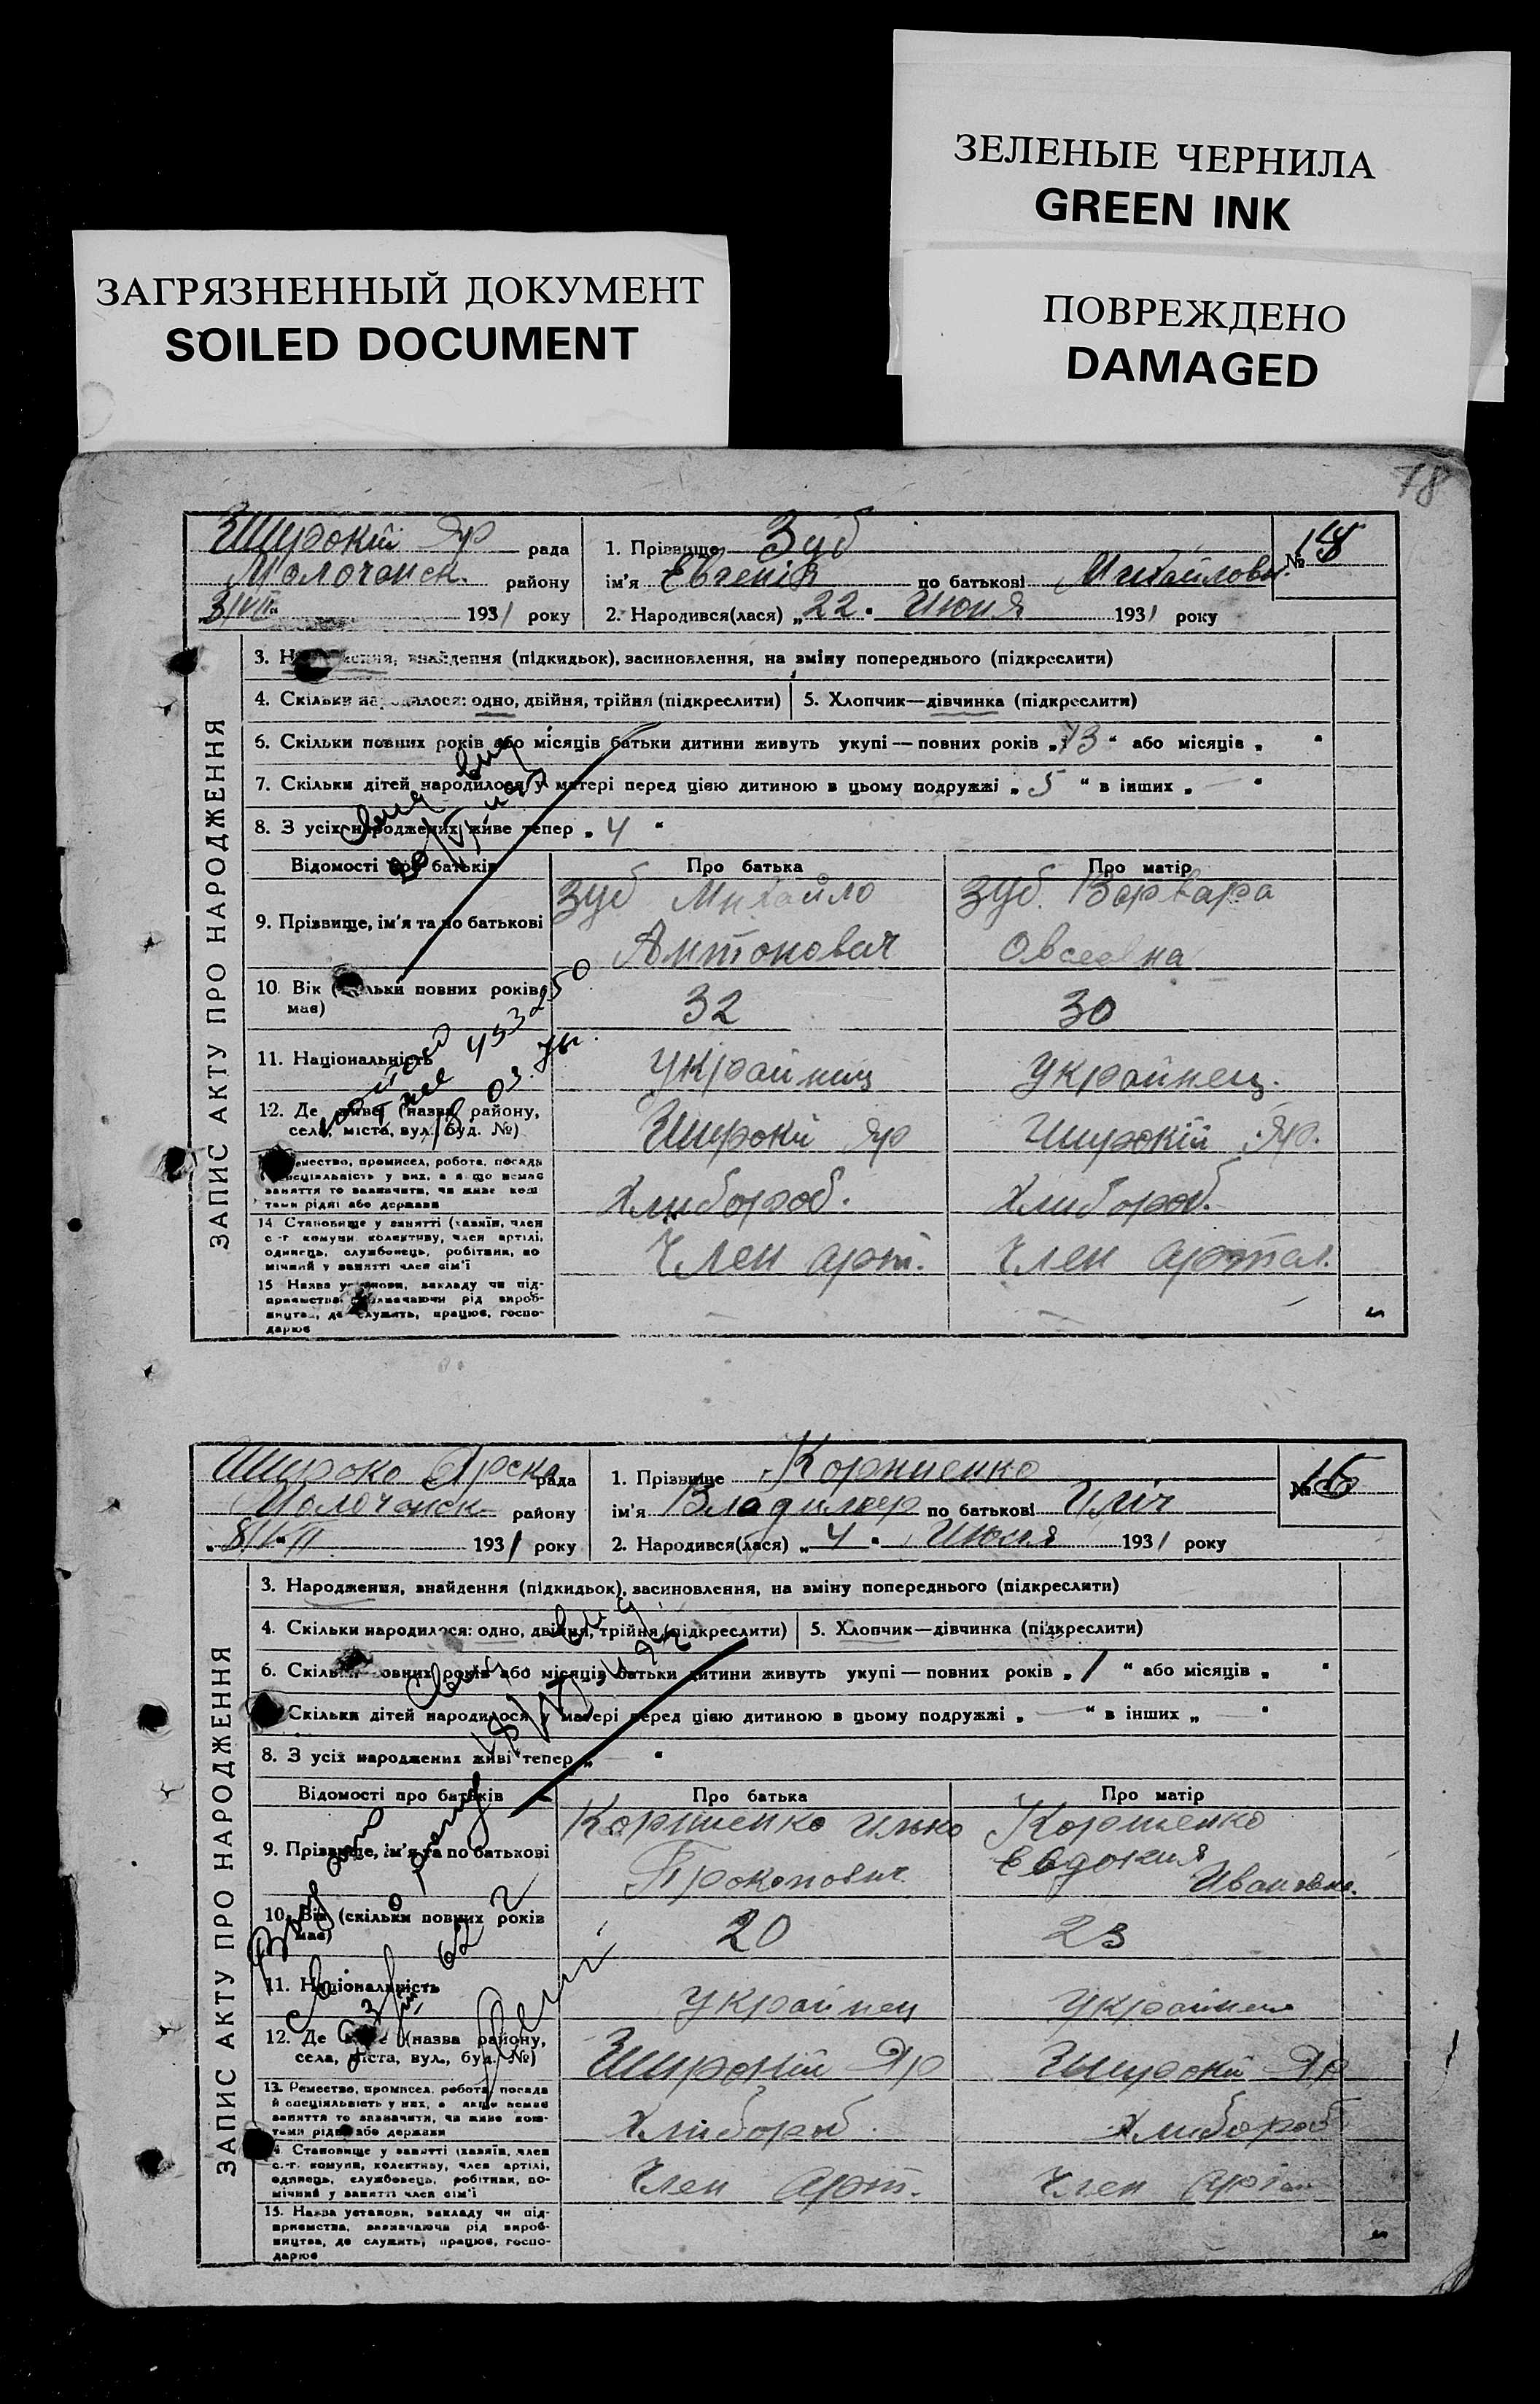 ЗЕЛЕНЫЕ ЧЕРНИЛА
GREEN INK
ЗАГРЯЗНЕННЫЙ ДОКУМЕНТ
SOILED DOCUMENT
ПОВРЕЖДЕНО
DAMAGED
78
ЗАПИС АКТУ ПРО НАРОДЖЕННЯ
Широкій Яр рада
Молочанск. району
1931 року
1. Прізвище Зуб
ім'я Евгенія по батькові Михайловн.
№
2. Народився(лася) „22" Июня 1931 року
3. знайдення (підкидьок), засиновлення, на зміну попереднього (підкреслити)
4. Скільки народилося: одно, двійня, трійня (підкреслити)
5. Хлопчик—дівчинка (підкреслити)
6. Скільки повних років або місяців батьки дитини живуть укупі—повних років „13" або місяців „ "
7. Скільки дітей народилося у матері перед цією дитиною в цьому подружжі „5" в інших „—"
8. З усіх народжених живе тепер „4"
Відомості про батьків
Про батька
Про матір
9. Прізвище, ім'я та по батькові
Зуб Михайло
Антонович
Зуб. Варвара
10. Вік (скільки повних років
має)
32
30
11. Національність
Украйнец
Украйнец.
12. Де живе (назва району,
села, міста, вул., буд. №)
Широкій Яр
Широкій Яр.
ремество, промисел, робота, посада
й спеціяльність у них, а якщо немає
заняття то зазначити, чи живе кош
тами рідні або держави
Хлибороб.
Хлибороб.
14. Становище у занятті (хазяїн, член
с.-г. комуни, колективу, член артілі,
одинець, службовець, робітник, по
мічний у занятті член сім'ї
Член арт.
Член артел.
15. Назва установи, закладу чи під-
приємства, зазначаючи рід вироб-
ництва, де служить, працює, госпо-
дарює
ЗАПИС АКТУ ПРО НАРОДЖЕННЯ
Широко Ярска рада
Молочанск району
1931 року
1. Прізвище Корниенко
ім'я Владимир по батькові Иліч
№ 16
2. Народився(лася) „4" Июля 1931 року
3. Народження, знайдення (підкидьок), засиновлення, на зміну попереднього (підкреслити)
4. Скільки народилося: одно, двійня, трійня (підкреслити)
5. Хлопчик—дівчинка (підкреслити)
6. Скільки повних років або місяців батьки дитини живуть укупі—повних років „1" або місяців „ "
Скільки дітей народилося у матері перед цією дитиною в цьому подружжі „—" в інших „—"
8. З усіх народжених живі тепер „—"
Відомості про батьків
Про батька
Про матір
9. Прізвище, ім'я та по батькові
Корниенко Илько
Прокопович
Корниенко
Евдокия
Ивановна.
10. Вік (скільки повних років
має)
20
23
11. Національність
Украйнец
Украйнец
12. Де живе (назва району,
села, міста, вул., буд. №)
Широкій Яр
Широкій Яр
13. Ремество, промисел, робота, посада
й спеціяльність у них, а якщо немає
заняття то зазначити, чи живе кош-
тами рідні або держави
Хлібороб.
Хлибороб
14. Становище у занятті (хазяїн, член
с.-г. комуни, колективу, член артілі,
одинець, службовець, робітник, по-
мічний у занятті член сім'ї
Член арт.
Член арт
15. Назва установи, закладу чи під-
приємства, зазначаючи рід вироб-
ництва, де служить, працює, госпо-
дарює